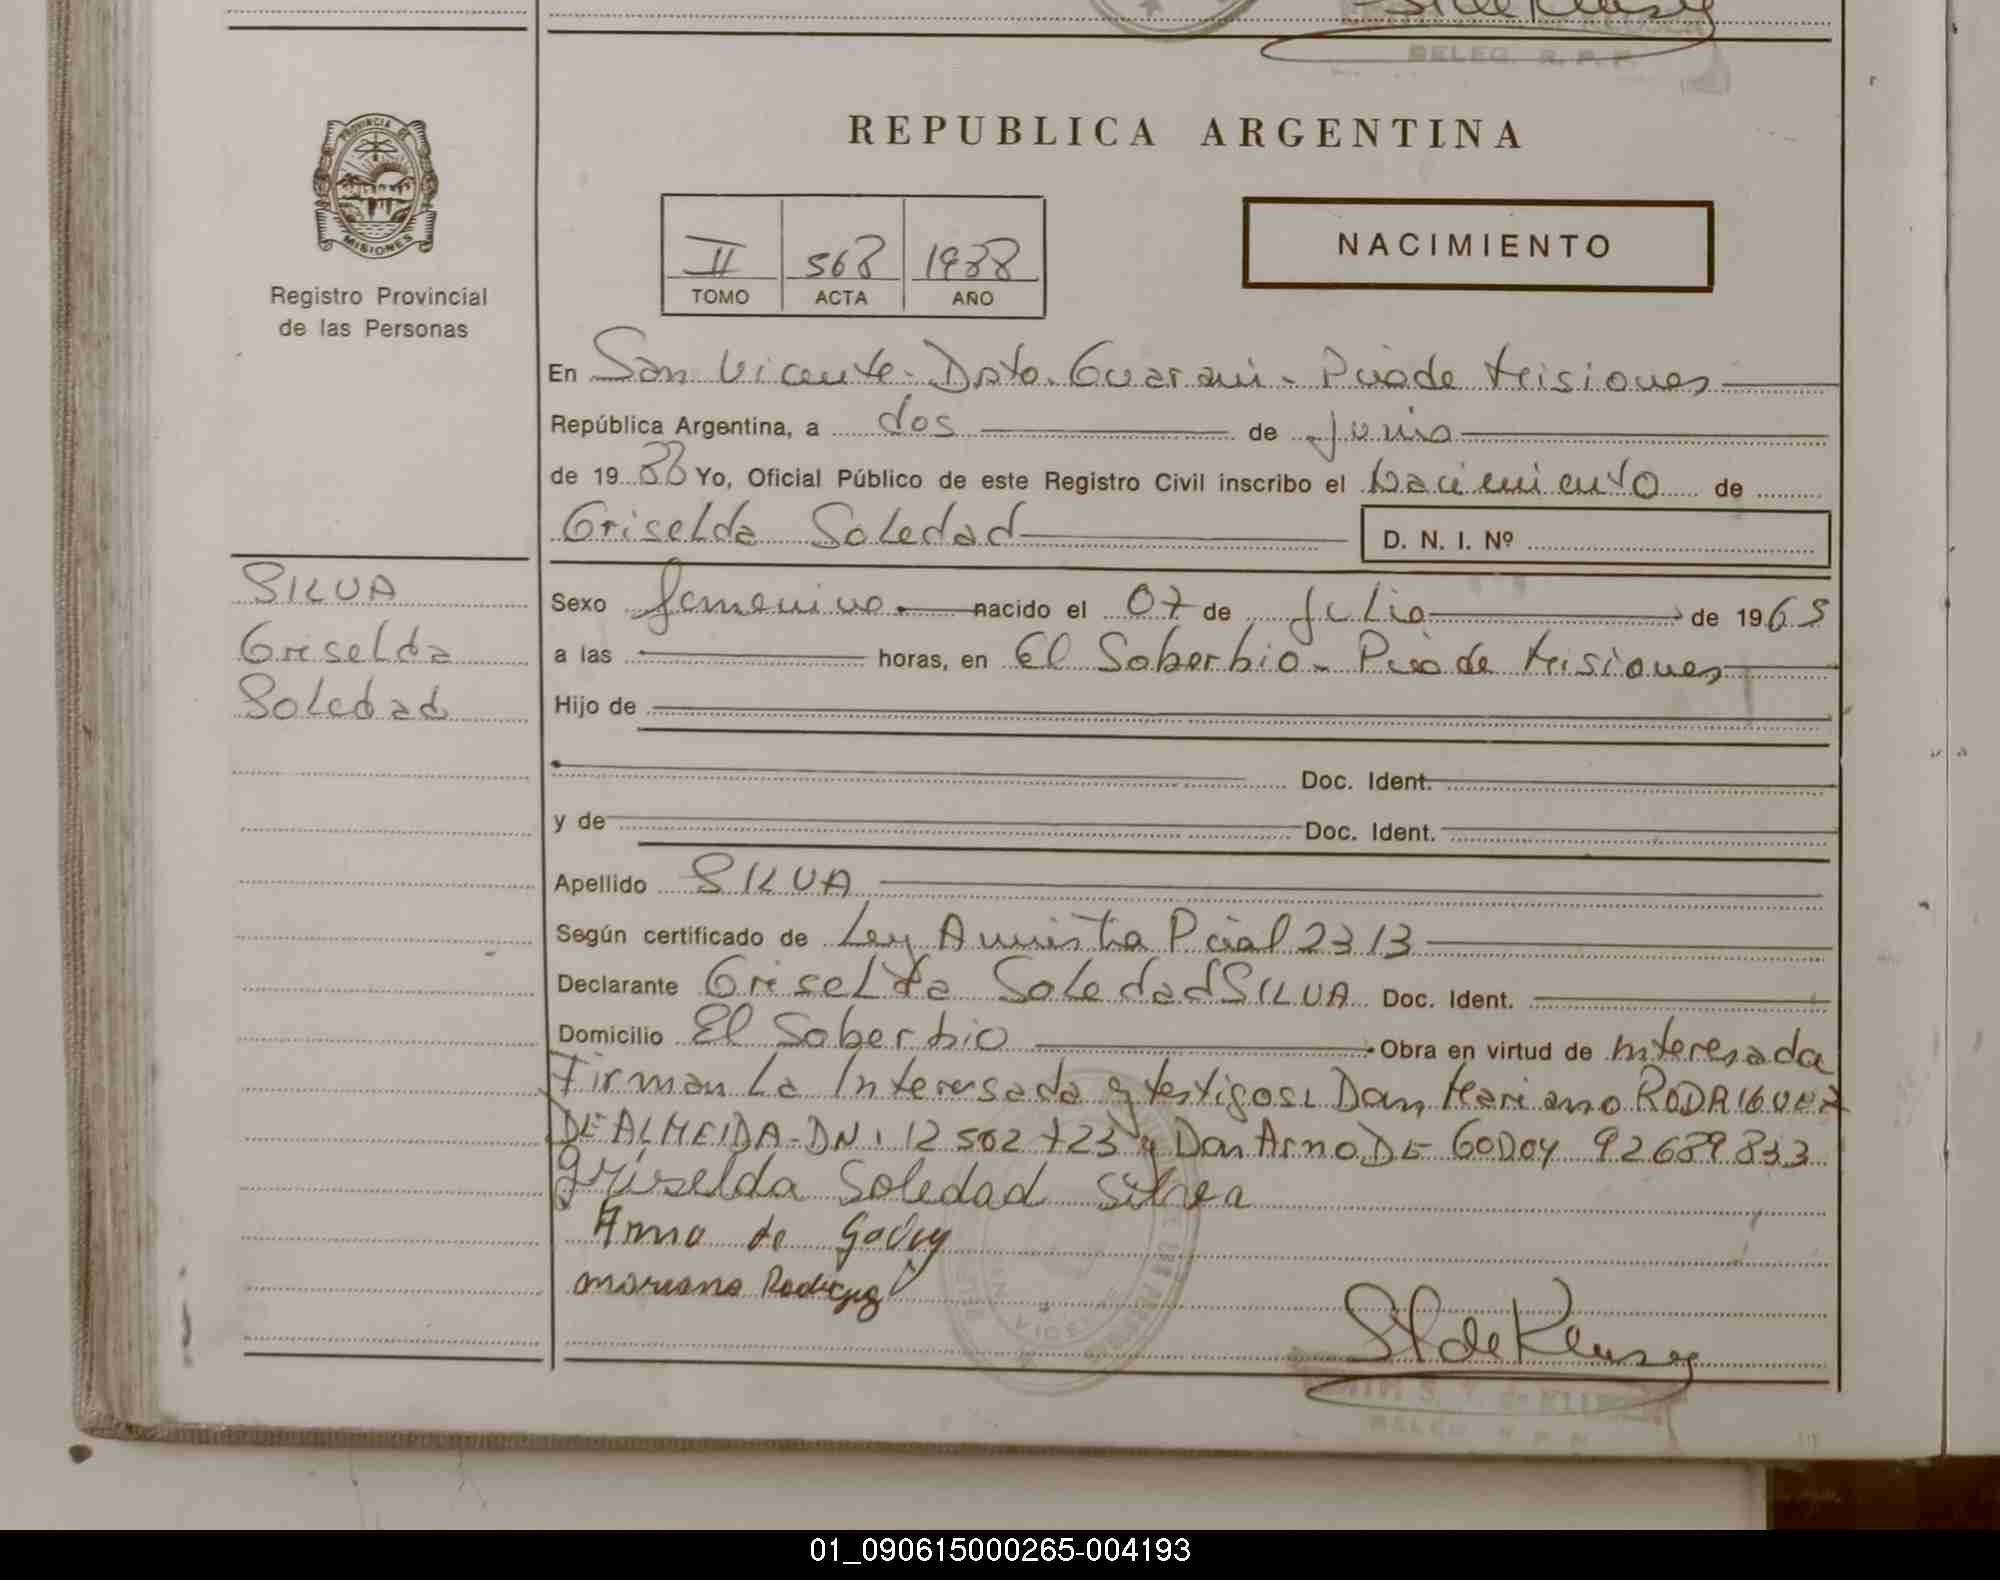 DELEG. R. P. P.
PROVINCIA DE
MISIONES
Registro Provincial
de las Personas
REPUBLICA ARGENTINA
II 568 1988
TOMO ACTA AÑO
NACIMIENTO
En San Vicente - Dpto. Guarani - Pcia de Misiones
República Argentina, a dos de Junio
de 19 88 Yo, Oficial Público de este Registro Civil inscribo el Nacimiento de
Griselda Soledad
D. N. I. Nº
SILVA
Griselda
Soledad
Sexo femenino nacido el 07 de Julio de 1965
a las horas, en El Soberbio - Pcia de Misiones
Hijo de
Doc. Ident.
y de Doc. Ident.
Apellido SILVA
Según certificado de Ley Amnistia Pcial 2313
Declarante Griselda Soledad SILVA Doc. Ident.
Domicilio El Soberbio Obra en virtud de Interesada
Firman La Interesada y testigos: Don Mariano RODRIGUEZ
DE ALMEIDA - DNI 12 502 723 y Don Arno DE GODOY 92689833
griselda Soledad Silvea
Arno de Godoy
mariano Rodriguez
St de Klusey
S. T. de
DELEG. R. P. P.
01_090615000265-004193